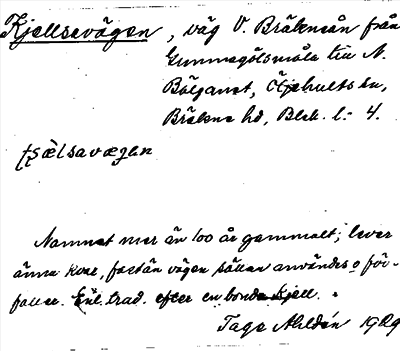 Kjellsavägen, väg V. Bräkneån från
Gummagölsmåla till N.
Bölganet, Öljehults sn,
Bräkne hd, Blek. l: 4.
Namnet mer än 100 år gammalt; lever
ännu kvar, fastän vägen sällan användes o för-
faller. Enl. trad. efter en bonde Kjell.
Tage Ahldén 1929